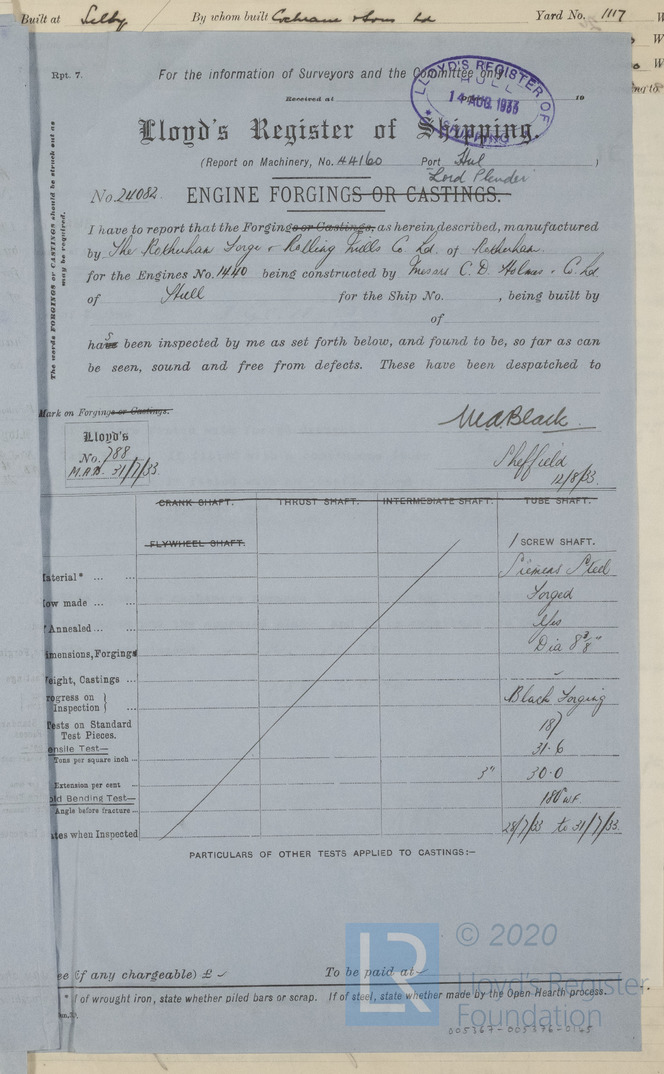 Built at Selby By whom built Cochrane & Sons Ld Yard No. 1117
Rpt. 7.
For the information of Surveyors and the Committee only
Received at 19
LLOYD'S REGISTER OF SHIPPING
HULL
14 AUG 1933
Lloyd's Register of Shipping.
(Report on Machinery, No. 44160 Port Hul )
"Lord Plender"
No. 24082. ENGINE FORGINGS OR CASTINGS.
The words FORGINGS or CASTINGS should be struck out as
may be required.
I have to report that the Forgings or Castings, as herein described, manufactured
by The Rotherham Forge & Rolling Mills Co Ld. of Rotherham.
for the Engines No. 1440 being constructed by Messrs C. D. Holmes & Co. Ld
of Hull for the Ship No. , being built by
of
has been inspected by me as set forth below, and found to be, so far as can
be seen, sound and free from defects. These have been despatched to
Mark on Forgings or Castings.
Lloyd's
No. 788
31/7/33.
W.A. Black.
Sheffield
12/8/33.
CRANK SHAFT. THRUST SHAFT. INTERMEDIATE SHAFT. TUBE SHAFT.
FLYWHEEL SHAFT. 1 SCREW SHAFT.
aterial* ... ... Siemens Steel
ow made ... ... Forged
f Annealed ... ... Yes
imensions, Forgings Dia 8 3/8"
eight, Castings ...
rogress on } Inspection } Black Forging
Tests on Standard
Test Pieces. 18/
ensile Test—
Tons per square inch ... 31.6
Extension per cent 3" 30.0
old Bending Test—
Angle before fracture— 180° W.F.
tes when Inspected 28/7/33 to 31/7/33.
PARTICULARS OF OTHER TESTS APPLIED TO CASTINGS:—
ee (if any chargeable) £ To be paid at
* If of wrought iron, state whether piled bars or scrap. If of steel, state whether made by the Open Hearth process.
LR
© 2020
Lloyd's Register
Foundation
005367-005376-0165